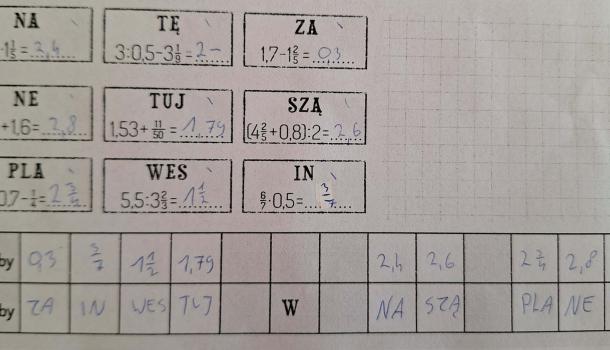 NA TĘ ZA
-1 1/5 = 2,4 3:0,5-3 1/9 = 2 1,7-1 2/5 = 0,3
NE TUJ SZĄ
+1,6= 2,8 1,53+ 11/50 = 1,79 (4 2/5 +0,8):2= 2,6
PLA WES IN
0,7- = 2 3/4 5,5:3 2/3 = 1 1/2 6/7 ·0,5= 3/7
by 0,3 3/7 1 1/2 1,79 2,4 2,6 2 3/4 2,8
by ZA IN WES TUJ W NA SZĄ PLA NE